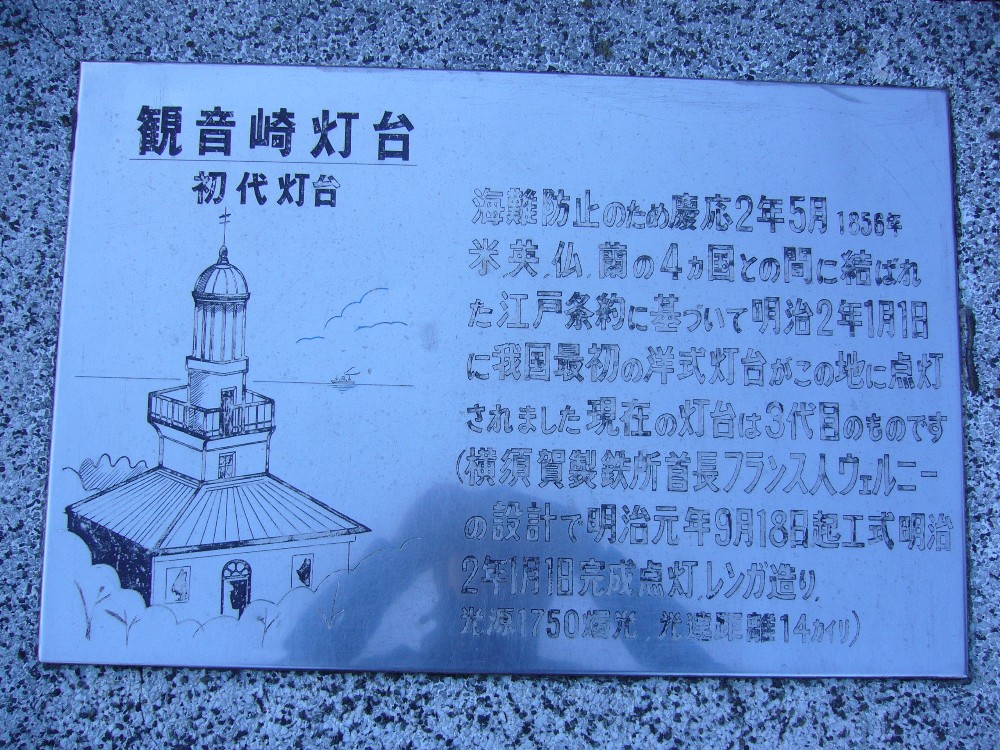 観音崎灯台
初代灯台
海難防止のため慶応2年5月 1856年
米.英.仏.蘭の4ヵ国との間に結ばれ
た江戸条約に基づいて明治2年1月1日
に我国最初の洋式灯台がこの地に点灯
されました現在の灯台は3代目のものです
(横須賀製鉄所首長フランス人ウェルニー
の設計で明治元年9月18日起工式明治
2年1月1日完成点灯.レンガ造り.
光源1750燭光 光達距離14カイリ)